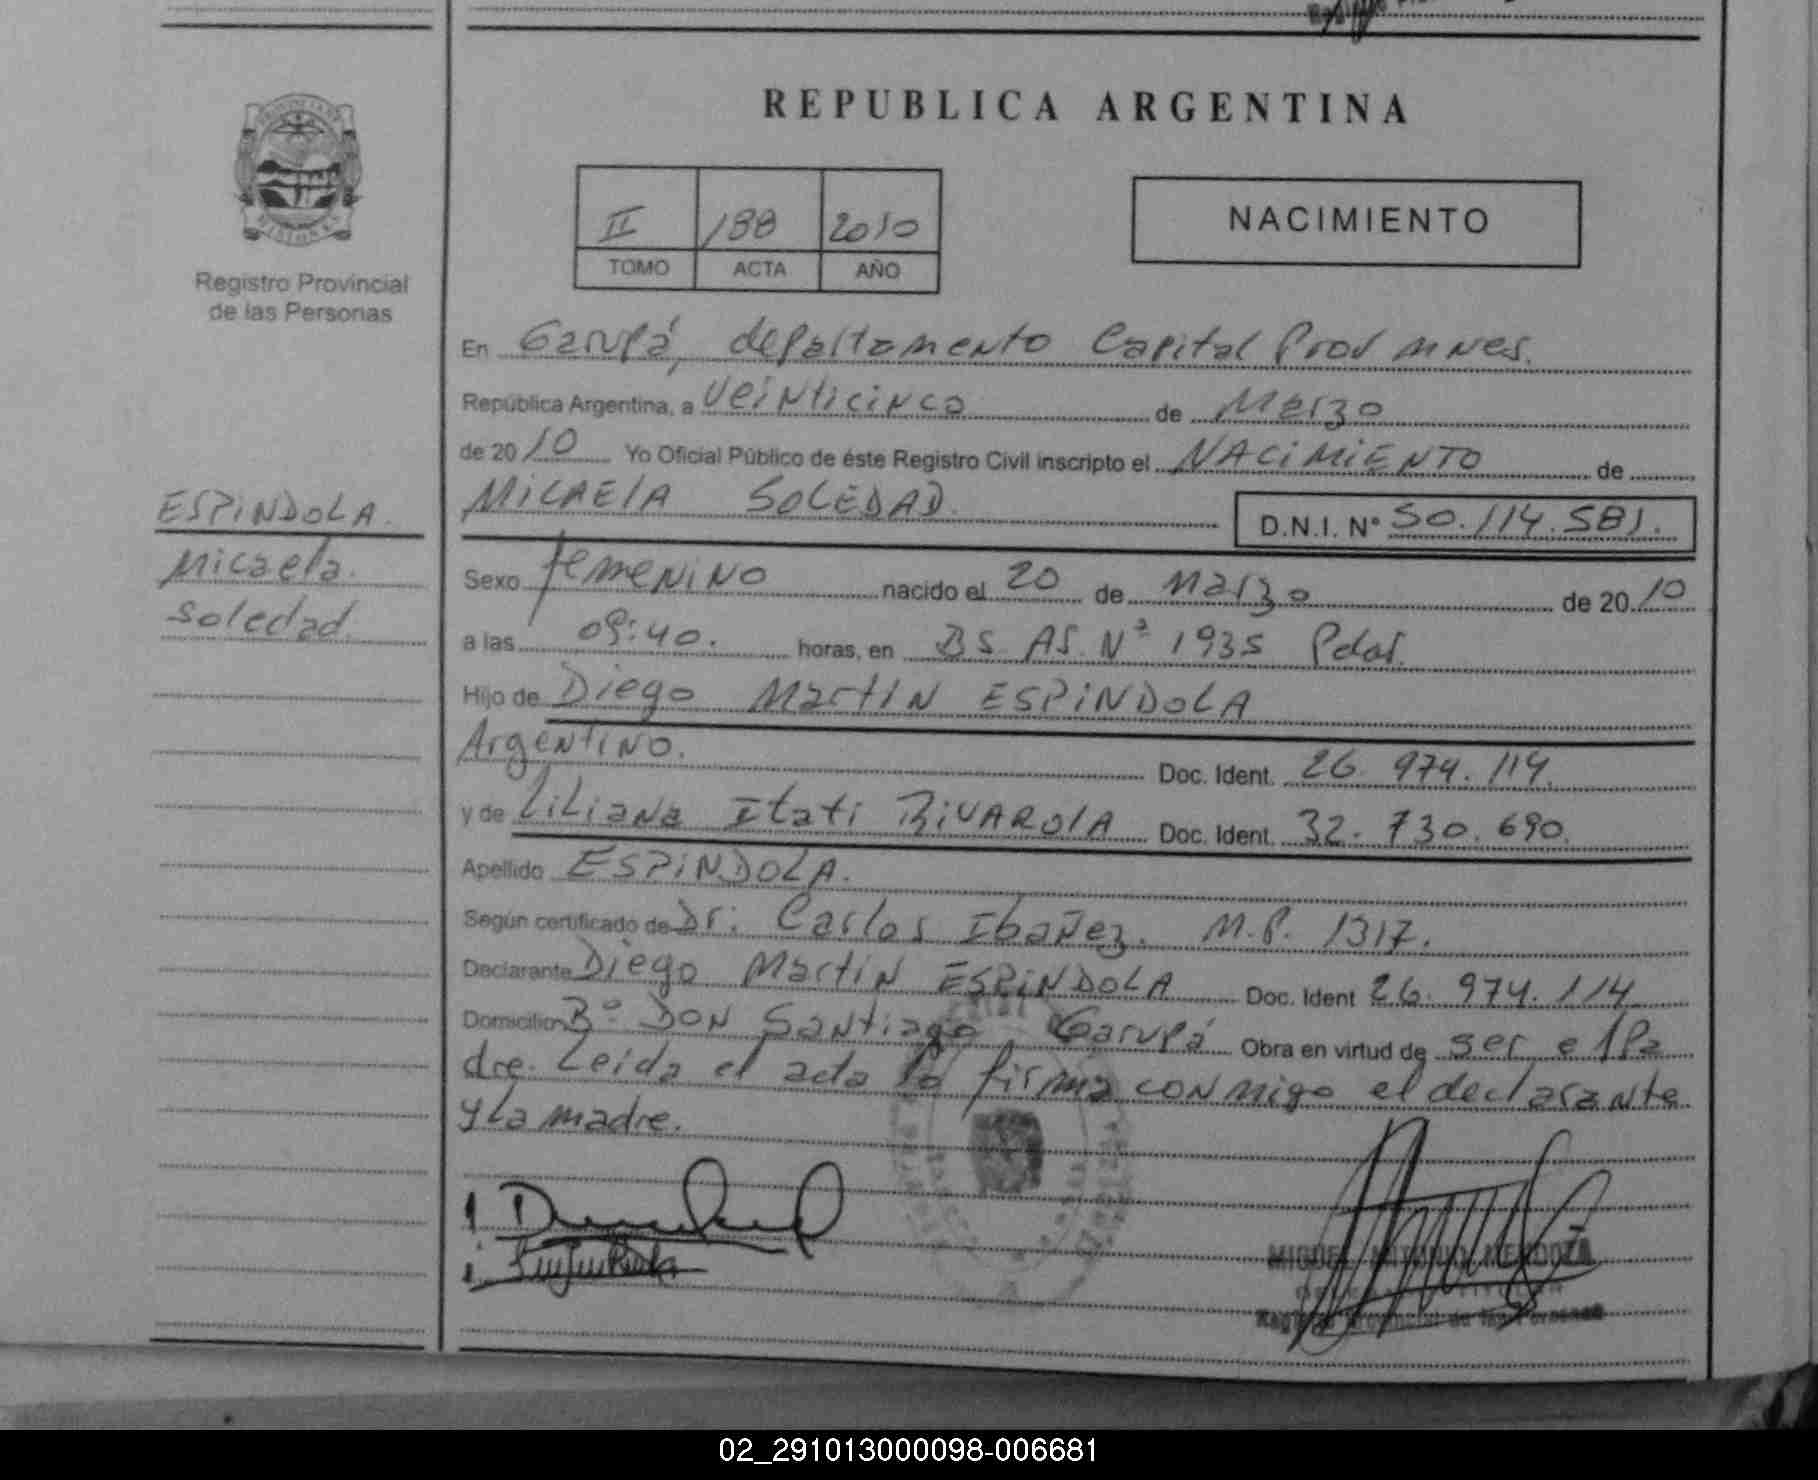 REPUBLICA ARGENTINA
II 188 2010
TOMO ACTA AÑO
NACIMIENTO
Registro Provincial
de las Personas
ESPINDOLA
Micaela
Soledad
En Garupá, departamento Capital Prov mnes.
República Argentina, a veinticinco de Marzo
de 2010 Yo Oficial Público de éste Registro Civil inscripto el NACIMIENTO de
MICAELA SOLEDAD D.N.I. N° 50.114.581.
Sexo femenino nacido el 20 de Marzo de 2010
a las 09:40. horas, en BS AS. Nº 1935 Pdas.
Hijo de Diego Martin ESPINDOLA
Argentino. Doc. Ident. 26.974.114.
y de Liliana Itati RIVAROLA Doc. Ident. 32.730.690.
Apellido ESPINDOLA.
Según certificado de Dr: Carlos Ibañez. M.P. 1317.
Declarante Diego Martin ESPINDOLA Doc. Ident 26.974.114
Domicilio B° DON Santiago Garupá Obra en virtud de ser el Pa
dre. Leida el acta la firma conmigo el declarante
y La madre.
MIGUEL ANTONIO MENDOZA
TITULAR
Registro Provincial de las Personas
02_291013000098-006681